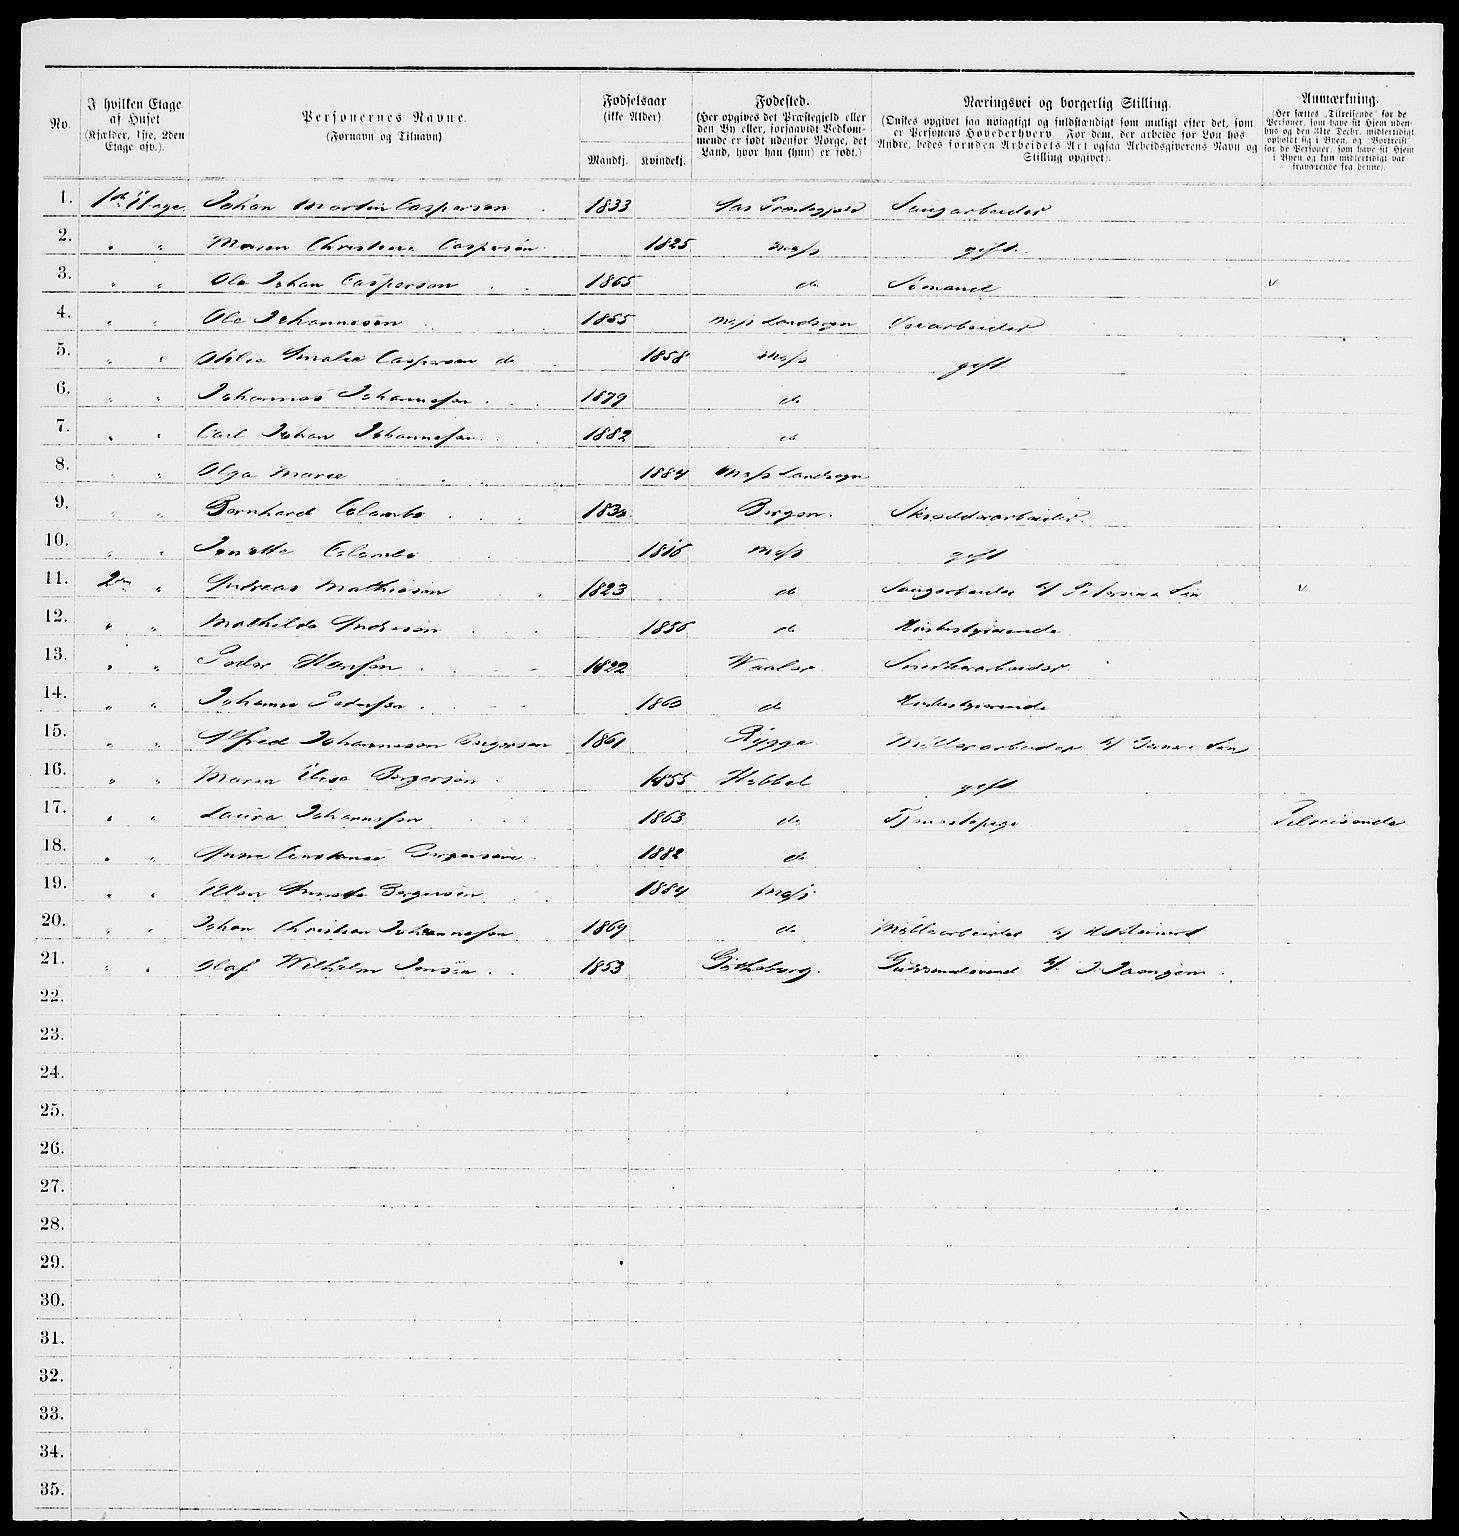 No.
I hvilken Etage
af Huset
(Kjælder, 1ste, 2den
Etage osv.).
Personernes Navne.
(Fornavn og Tilnavn)
Fødselsaar
(ikke Alder)
Mandkj. Kvindekj.
Fødested.
(Her opgives det Præstegjeld eller
den By eller, forsaavidt Vedkom-
mende er født udenfor Norge, det
Land, hvor han (hun) er født.)
Næringsvei og borgerlig Stilling.
(Ønskes opgivet saa nøiagtigt og fuldstændigt som muligt efter det, som
er Personens Hovederhverv. For dem, der arbeide for Løn hos
Andre, bedes foruden Arbeidets Art ogsaa Arbeidsgiverens Navn og
Stilling opgivet).
Anmærkning.
(Her sættes „Tilreisende“ for de
Personer, som have sit Hjem uden-
bys og den 31te Decbr. midlertidigt
opholdt sig i Byen, og „Bortreist“
for de Personer, som have sit Hjem
i Byen og kun midlertidigt var
fraværende fra denne).
1. 1ste Etage Johan Martin Caspersen 1833 Aas Præstegjæld Saugarbeider
2. " " Maren Christine Caspersen 1825 Moss gift
3. " " Ole Johan Caspersen 1865 do Sømand v
4. " " Ole Johannesen 1855 Moss Landsogn
5. " " Amalie Caspersen do 1858 Moss gift
6. " " Johannes Johannessen 1879 do
7. " " Carl Johan Johannessen 1882 do
8. " " Olga Marie 1884 Moss Landsogn
9. " " Bernhard Colombo Bergen. Skrædderarbeider.
10. " " Colombo 1816 Moss gift
11. 2den " Andreas Mathiesen 1823 do Saugarbeider v/ Petersen & Søn v
12. " " Mathilde Andresen 1856 do Husbestyrende
13. " " Peder Hansen 1822 Waaler Snedkerarbeider
14. " " Johanne Pedersen 1860 do Husbestyrende
15. " " Alfred Johannesen Bergersen 1861 Rygge Møllearbeider v/
16. " " Maren Elise Bergersen 1855 Hobbøl gift
17. " " Laura Johannessen 1863 do Tjenestepige Tilreisende
18. " " Anne Bergersen 1882 do
19. " " Ellen Annette Bergersen 1884 Moss
20. " " Johan Christian Johannessen 1869 do Møllearbeider v/
21. " " Olaf Wilhelm Jensen 1853 Gøtheborg.
22.
23.
24.
25.
26.
27.
28.
29.
30.
31.
32.
33.
34.
35.